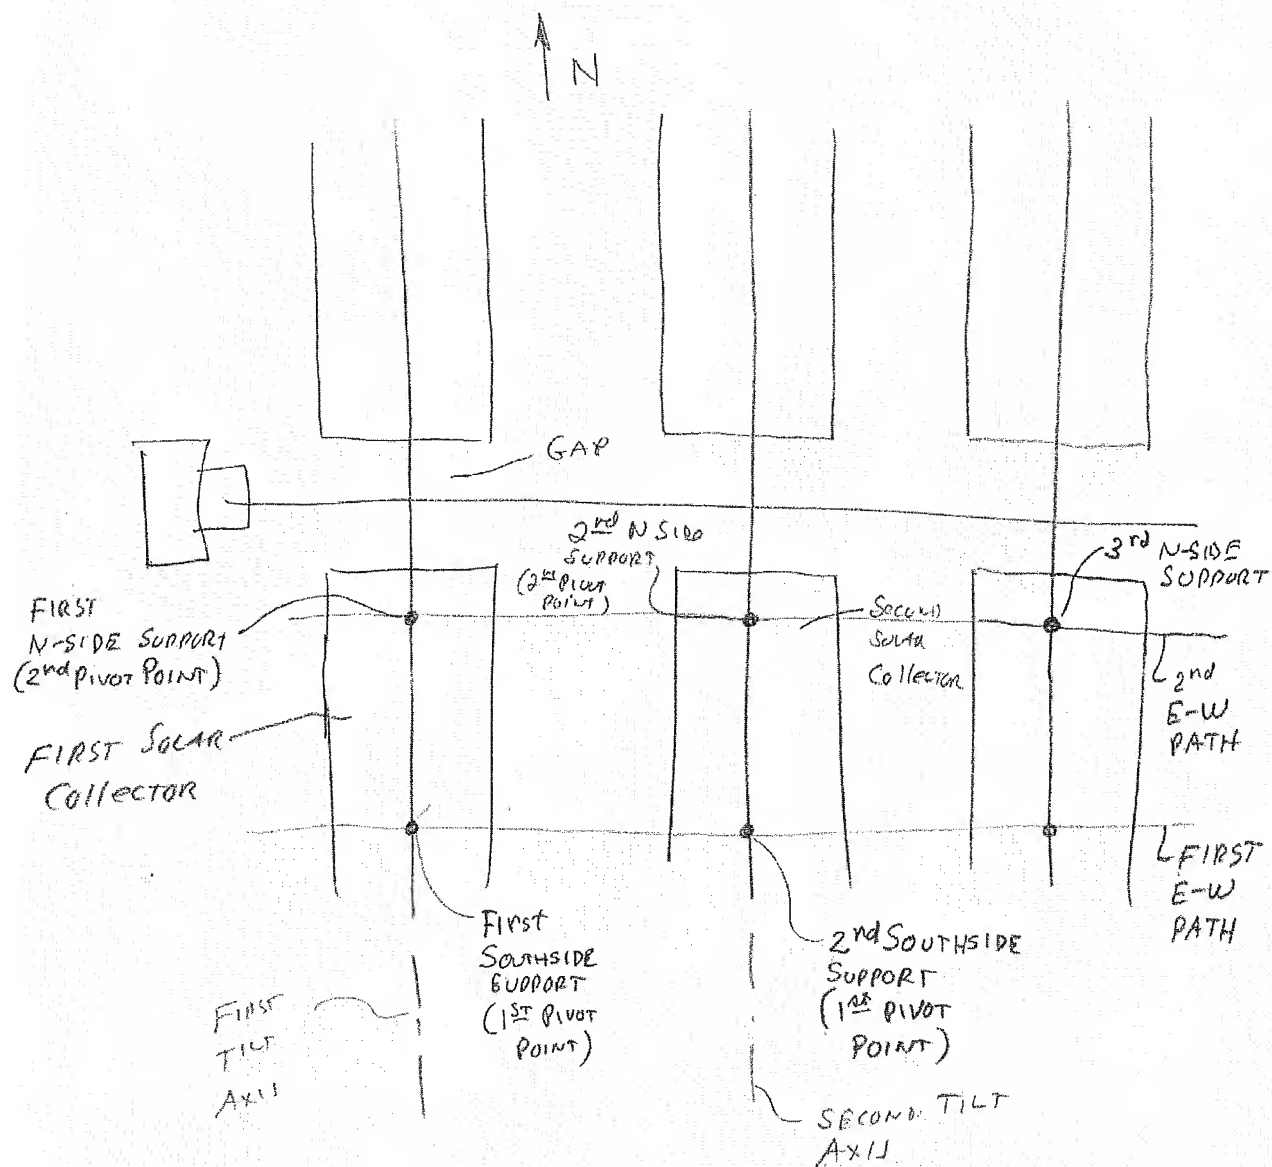 N
GAP
2nd N SIDE
SUPPORT
(2nd PIVOT
POINT)
3rd N-SIDE
SUPPORT
FIRST
N-SIDE SUPPORT
(2nd PIVOT POINT)
SECOND
SOLAR
COLLECTOR
2nd
E-W
PATH
FIRST SOLAR
COLLECTOR
FIRST
E-W
PATH
FIRST
SOUTHSIDE
SUPPORT
(1ST PIVOT
POINT)
2nd SOUTHSIDE
SUPPORT
(1st PIVOT
POINT)
FIRST
TILT
AXIS
SECOND TILT
AXIS